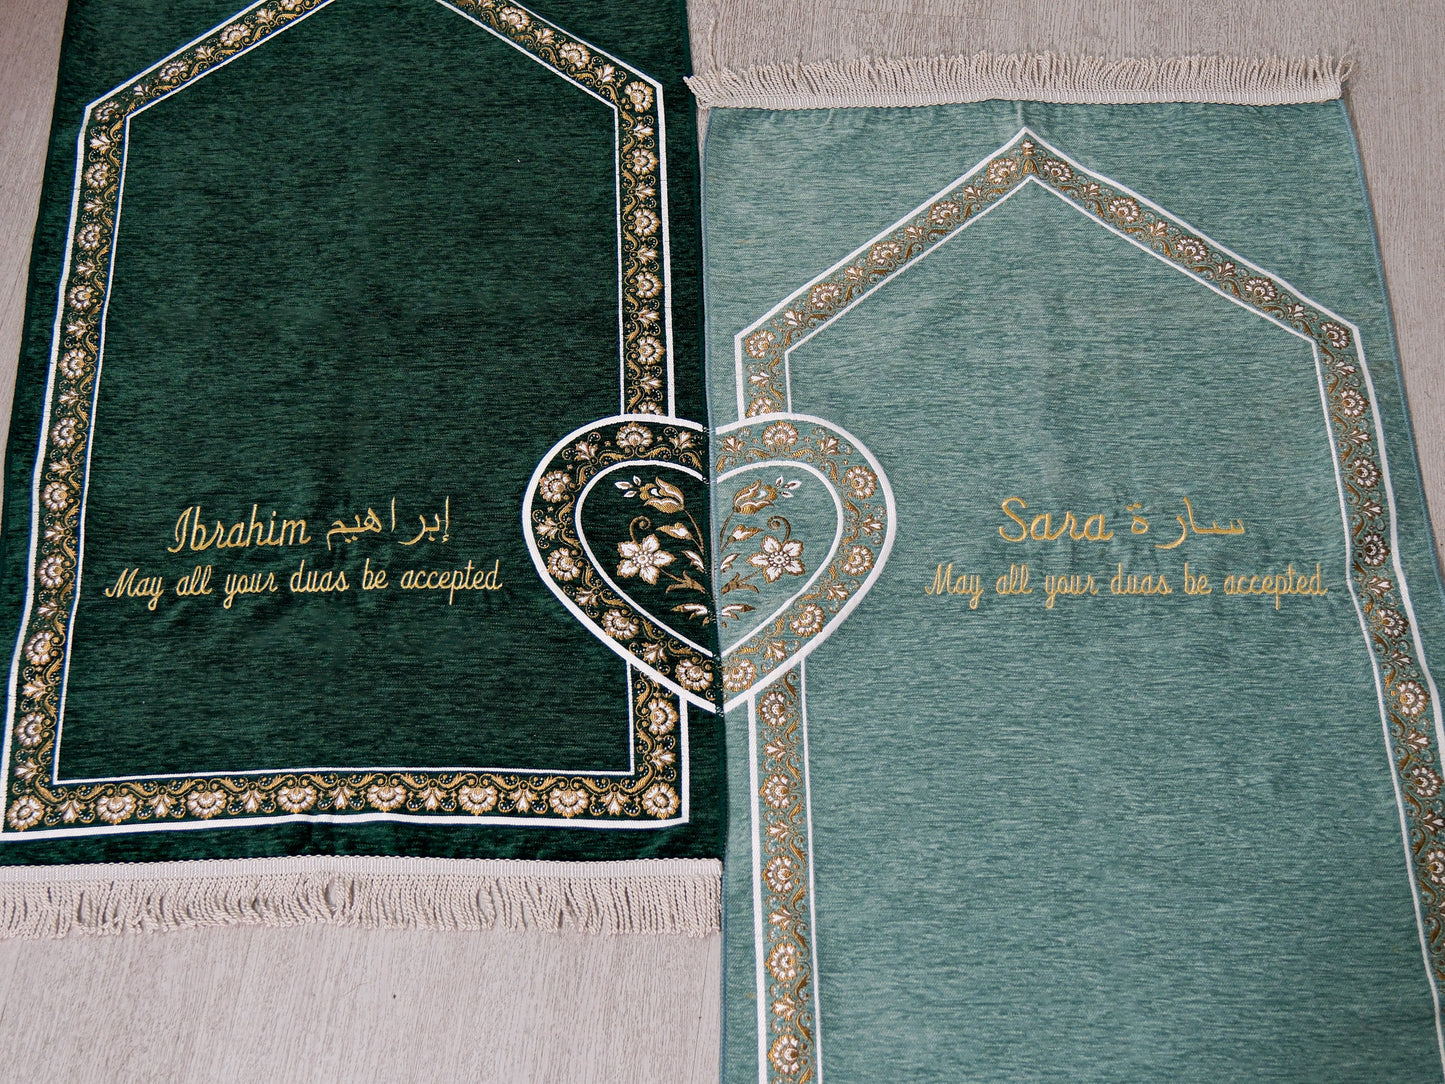 Ibrahim إبراهيم
May all your duas be accepted
Sara سارة
May all your duas be accepted